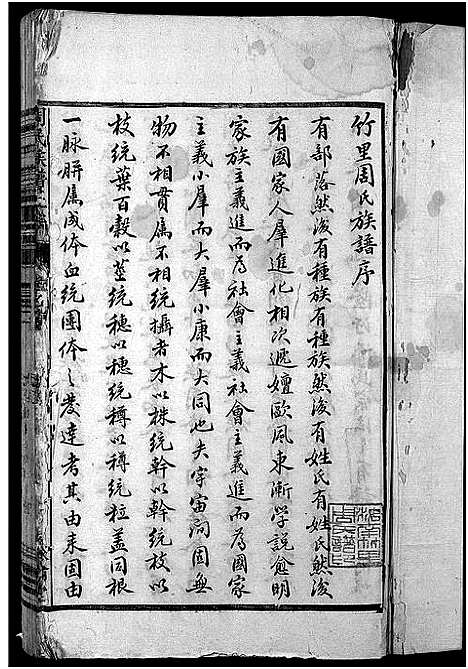 竹里周氏族譜序
有部落然後有種族有種族然後有姓氏有姓氏然後
有國家人羣進化相次遞嬗歐風東漸學說愈明
家族主義進而為社會主義社會主義進而為國家
主義小羣而大羣小康而大同也夫宇宙洞固無
物不相貫屬不相統攝者木以株統幹以幹統枝以
枝統葉百穀以莖統穗以穗統稃以稃統粒蓋同根
一脉骿屬成体血統團体之發達者其由来固由